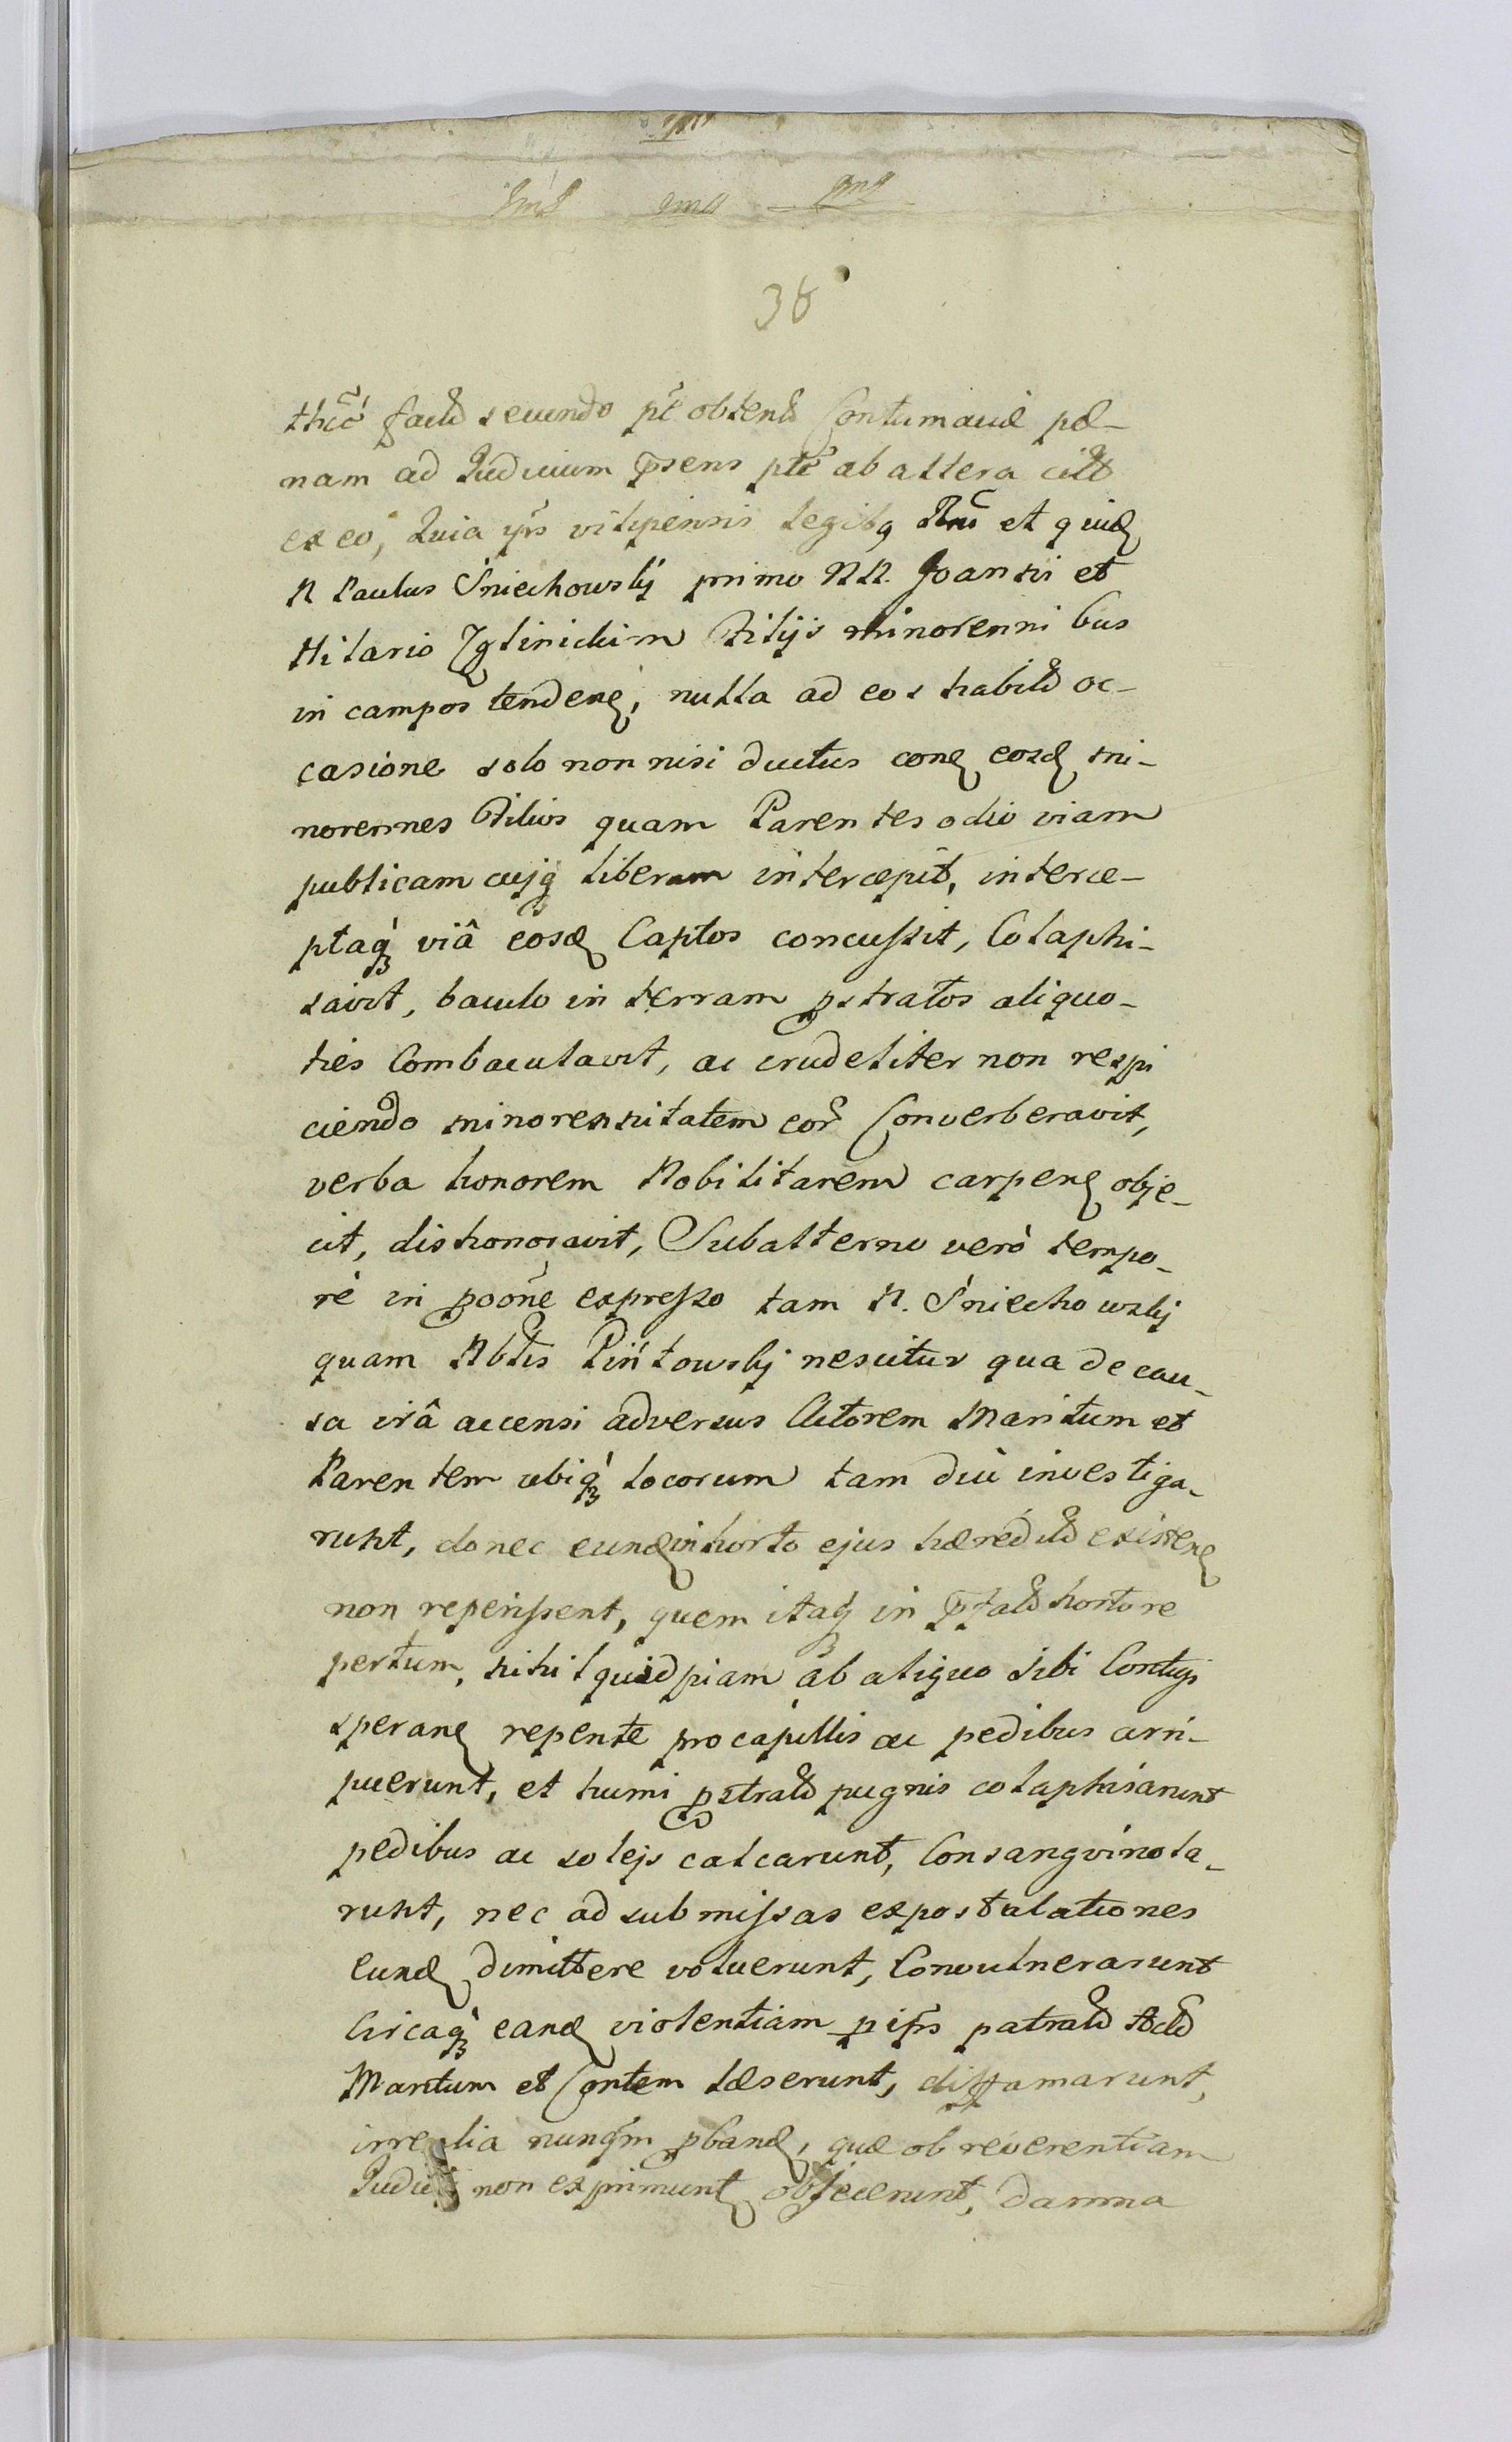 38
facto secundo pt obtent Contumaciæ pæ-
nam ad Judicium psens pte ab altera citt
ex eo, Quia ips vilipensis legibq Rni et quide
N Paulus Sniechowskj primo NN. Joanni et
Hilario Jglinickim Filijs minorennibus
in campos tenden, nulla ad eos habita oc-
casione solo non nisi ductus con eosd mi-
norennes Filios quam Parentes odio viam
publicam cujq liberam intercæpit, interce-
ptaq viâ eosd Captos concussit, Colaphi-
savit, baculo in terram pstratos aliquo-
ties Combaculavit, ac crudeliter non respi
ciendo minorennitatem eor Converberavit,
verba honorem Nobilitarem carpen obje-
cit, dishonoravit, Subalterno verò tempo-
re in ppone expresso tam N. Śniechowskj
quam Nblis Pińtowskj nescitur qua de cau-
sa irâ accensi adversus Actorem Maritum et
Parentem ubiq locorum tam diu investiga-
runt, donec eund in horto ejus hæredit existen
non reperissent, quem itaq in pfato horto re
pertum, nihil quidpiam ab aliquo sibi Contigi
speran repente pro capillis ac pedibus arri-
puerunt, et humi pstrato pugnis colaphisarunt
pedibus ac solejs calcarunt, Consangvinola-
runt, nec ad submissas expostulationes
Eund dimittere voluerunt, Convulnerarunt
Circaq eand violentiam p ips patratã
Maritum et læserunt, diffamarunt,
nunqm pband, quæ ob reverentiam
Judicij non exprimunt objecerunt, damna